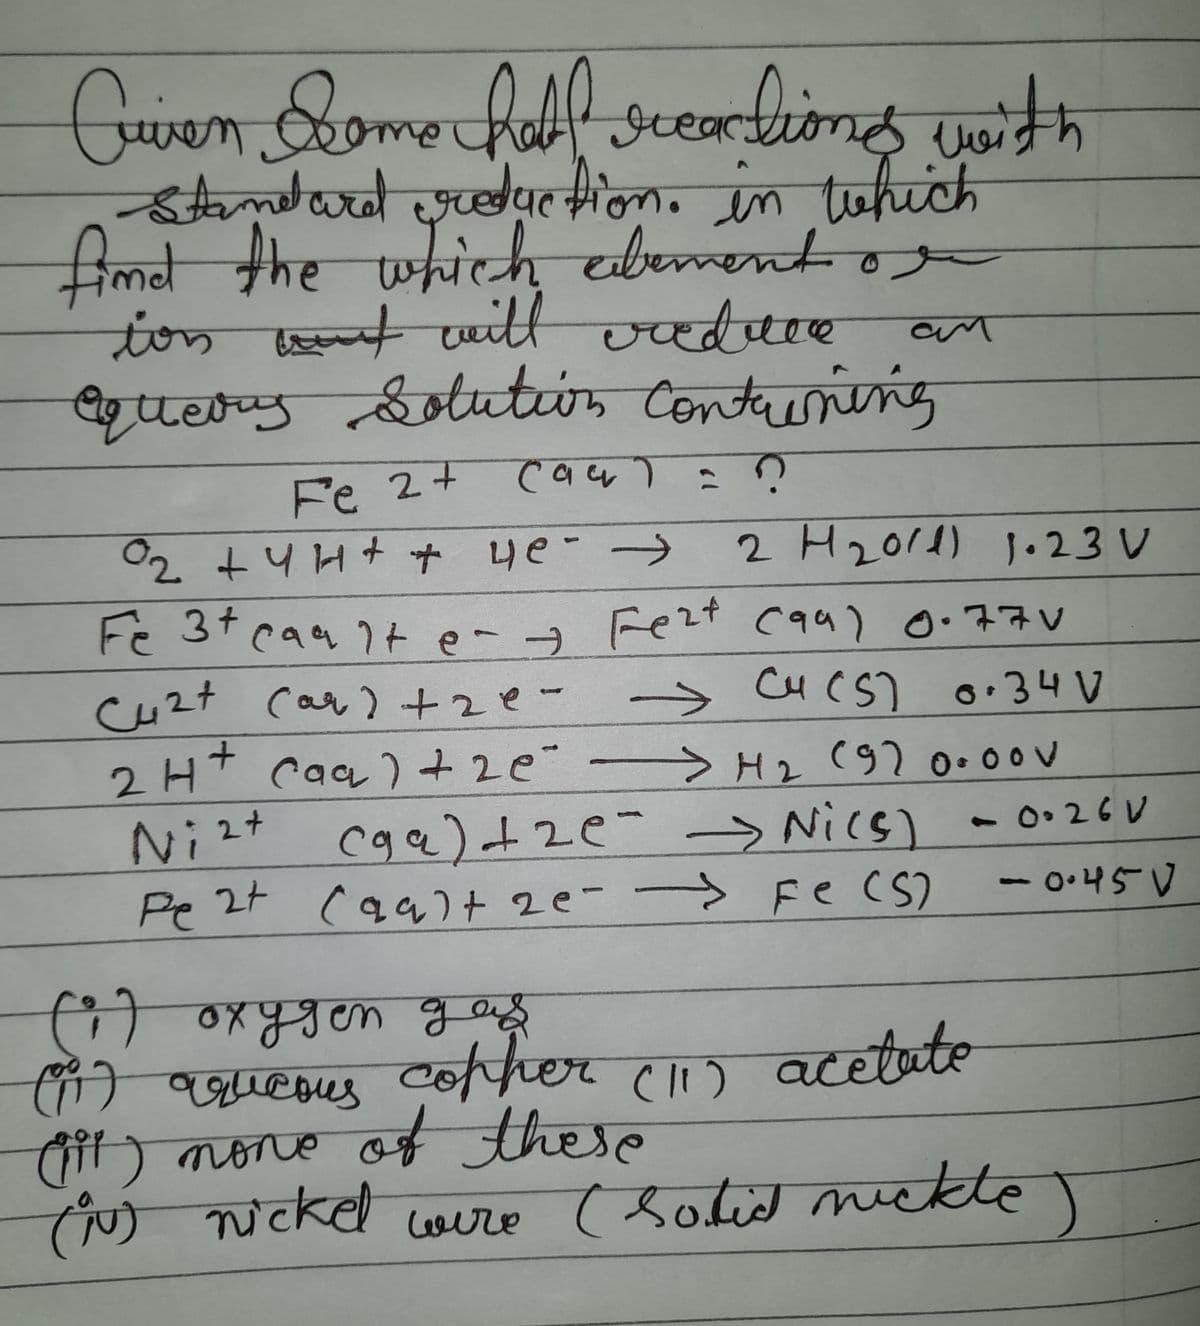 Given Some half reactions with
standard reduction. in which
find the which element or
ion will reduce an
aqueous Solution Containing
Fe 2+ (aq) = ?
O2 + 4H+ + 4e- → 2 H2O(l) 1.23 V
Fe 3+ (aq) + e- → Fe2+ (aq) 0.77V
Cu2+ (aq) + 2e- → Cu (s) 0.34 V
2 H+ (aq) + 2e- → H2 (g) 0.00V
Ni 2+ (aq) + 2e- → Ni(s) - 0.26 V
Fe 2+ (aq) + 2e- → Fe (s) - 0.45 V
(i) oxygen gas
(ii) aqueous copper (II) acetate
(iii) none of these
(iv) nickel wire (Solid nickle)